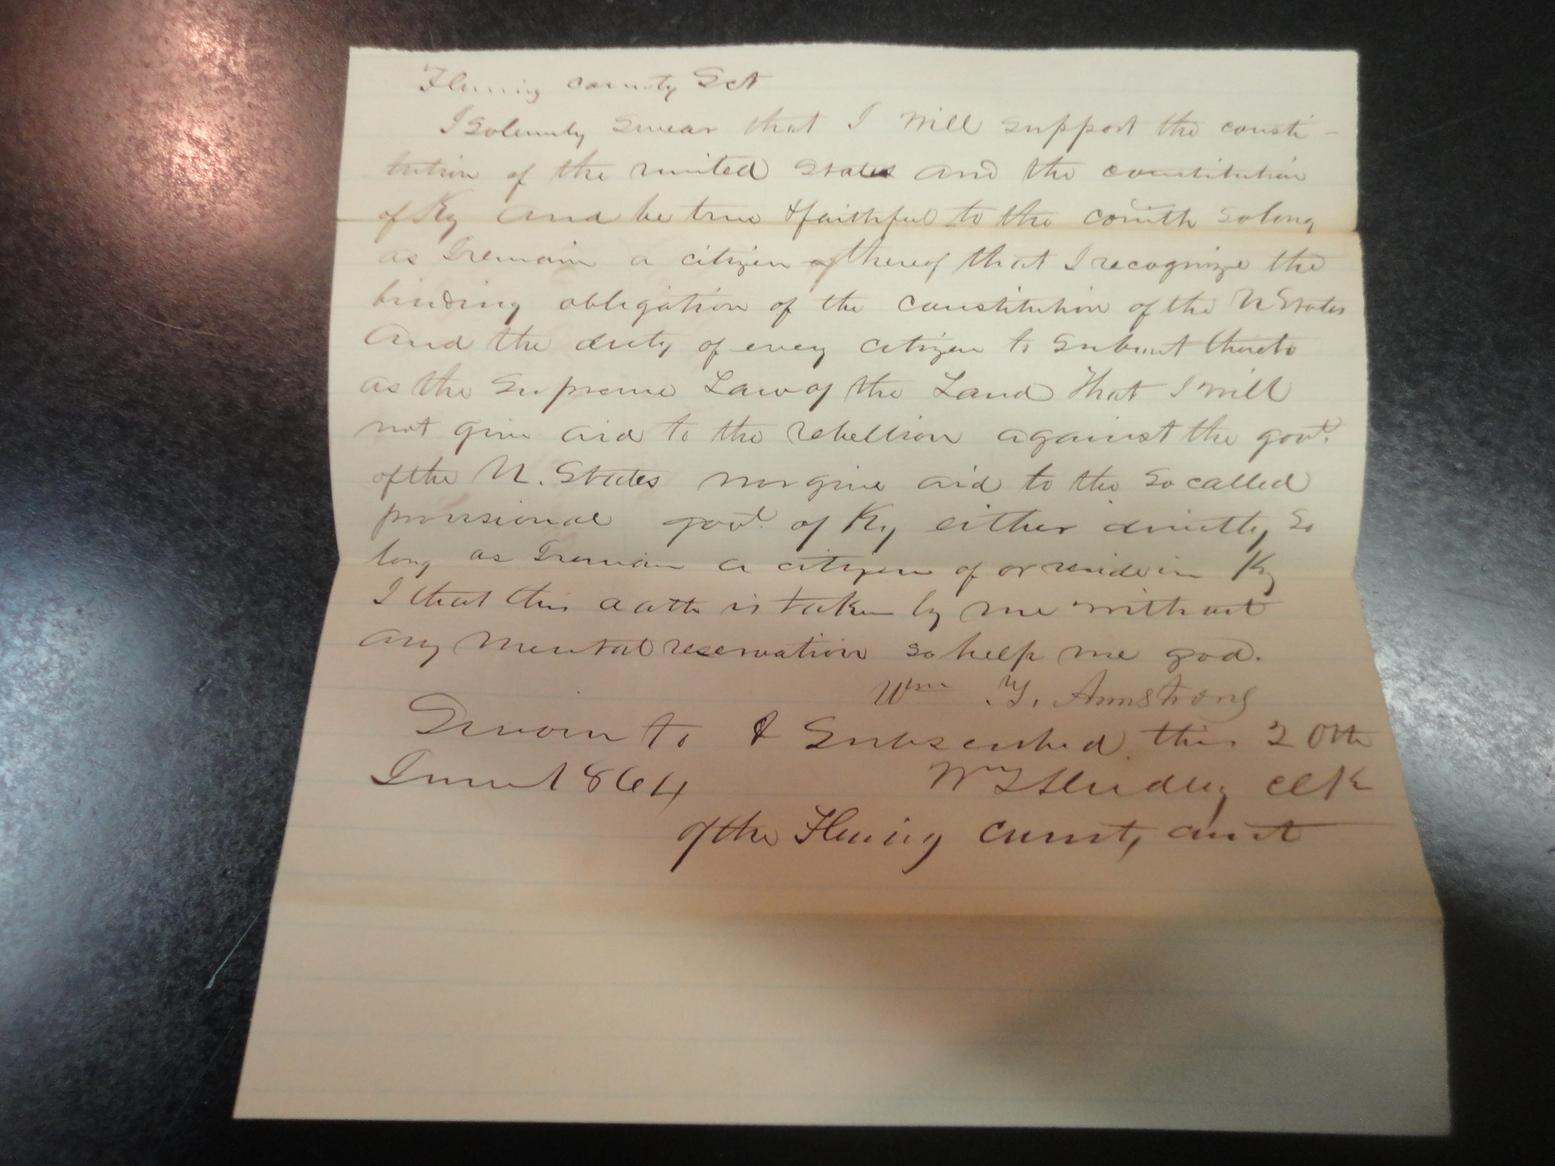 Fleming County Sct
I Solemnly Swear that I Will Support the consti-
tution of the united States and the constitution
of Ky and be true & faithful to the comth So long
as I remain a citizen thereof that I recognize the
binding obligation of the constitution of the U States
and the duty of every citizen to Submit thereto
as the Supreme Law of the Land That I will
not give aid to the rebellion against the govt.
of the U. States nor give aid to the So called
provisional govt. of Ky either directly So
long as I remain a citizen of or reside in Ky
& that this oath is taken by me without
any mental reservation So help me god.
Wm Y. Armstrong
Sworn to & Subscribed this 20th
June 1864 Wm Clk
of the Fleming County Court